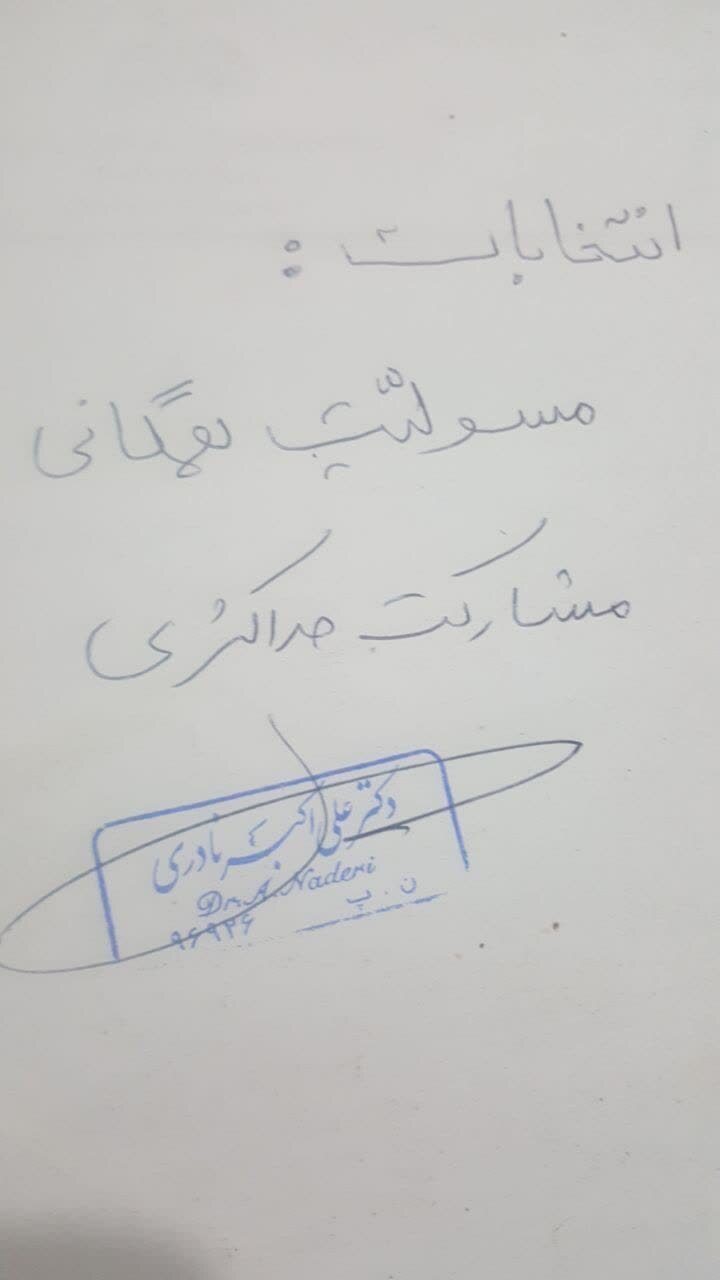 انتخابات :
مسولیّت همگانی
مشارکت حداکثری
دکتر علی اکبر نادری
Dr. A. Naderi
ن . پ ۹۶۹۳۶